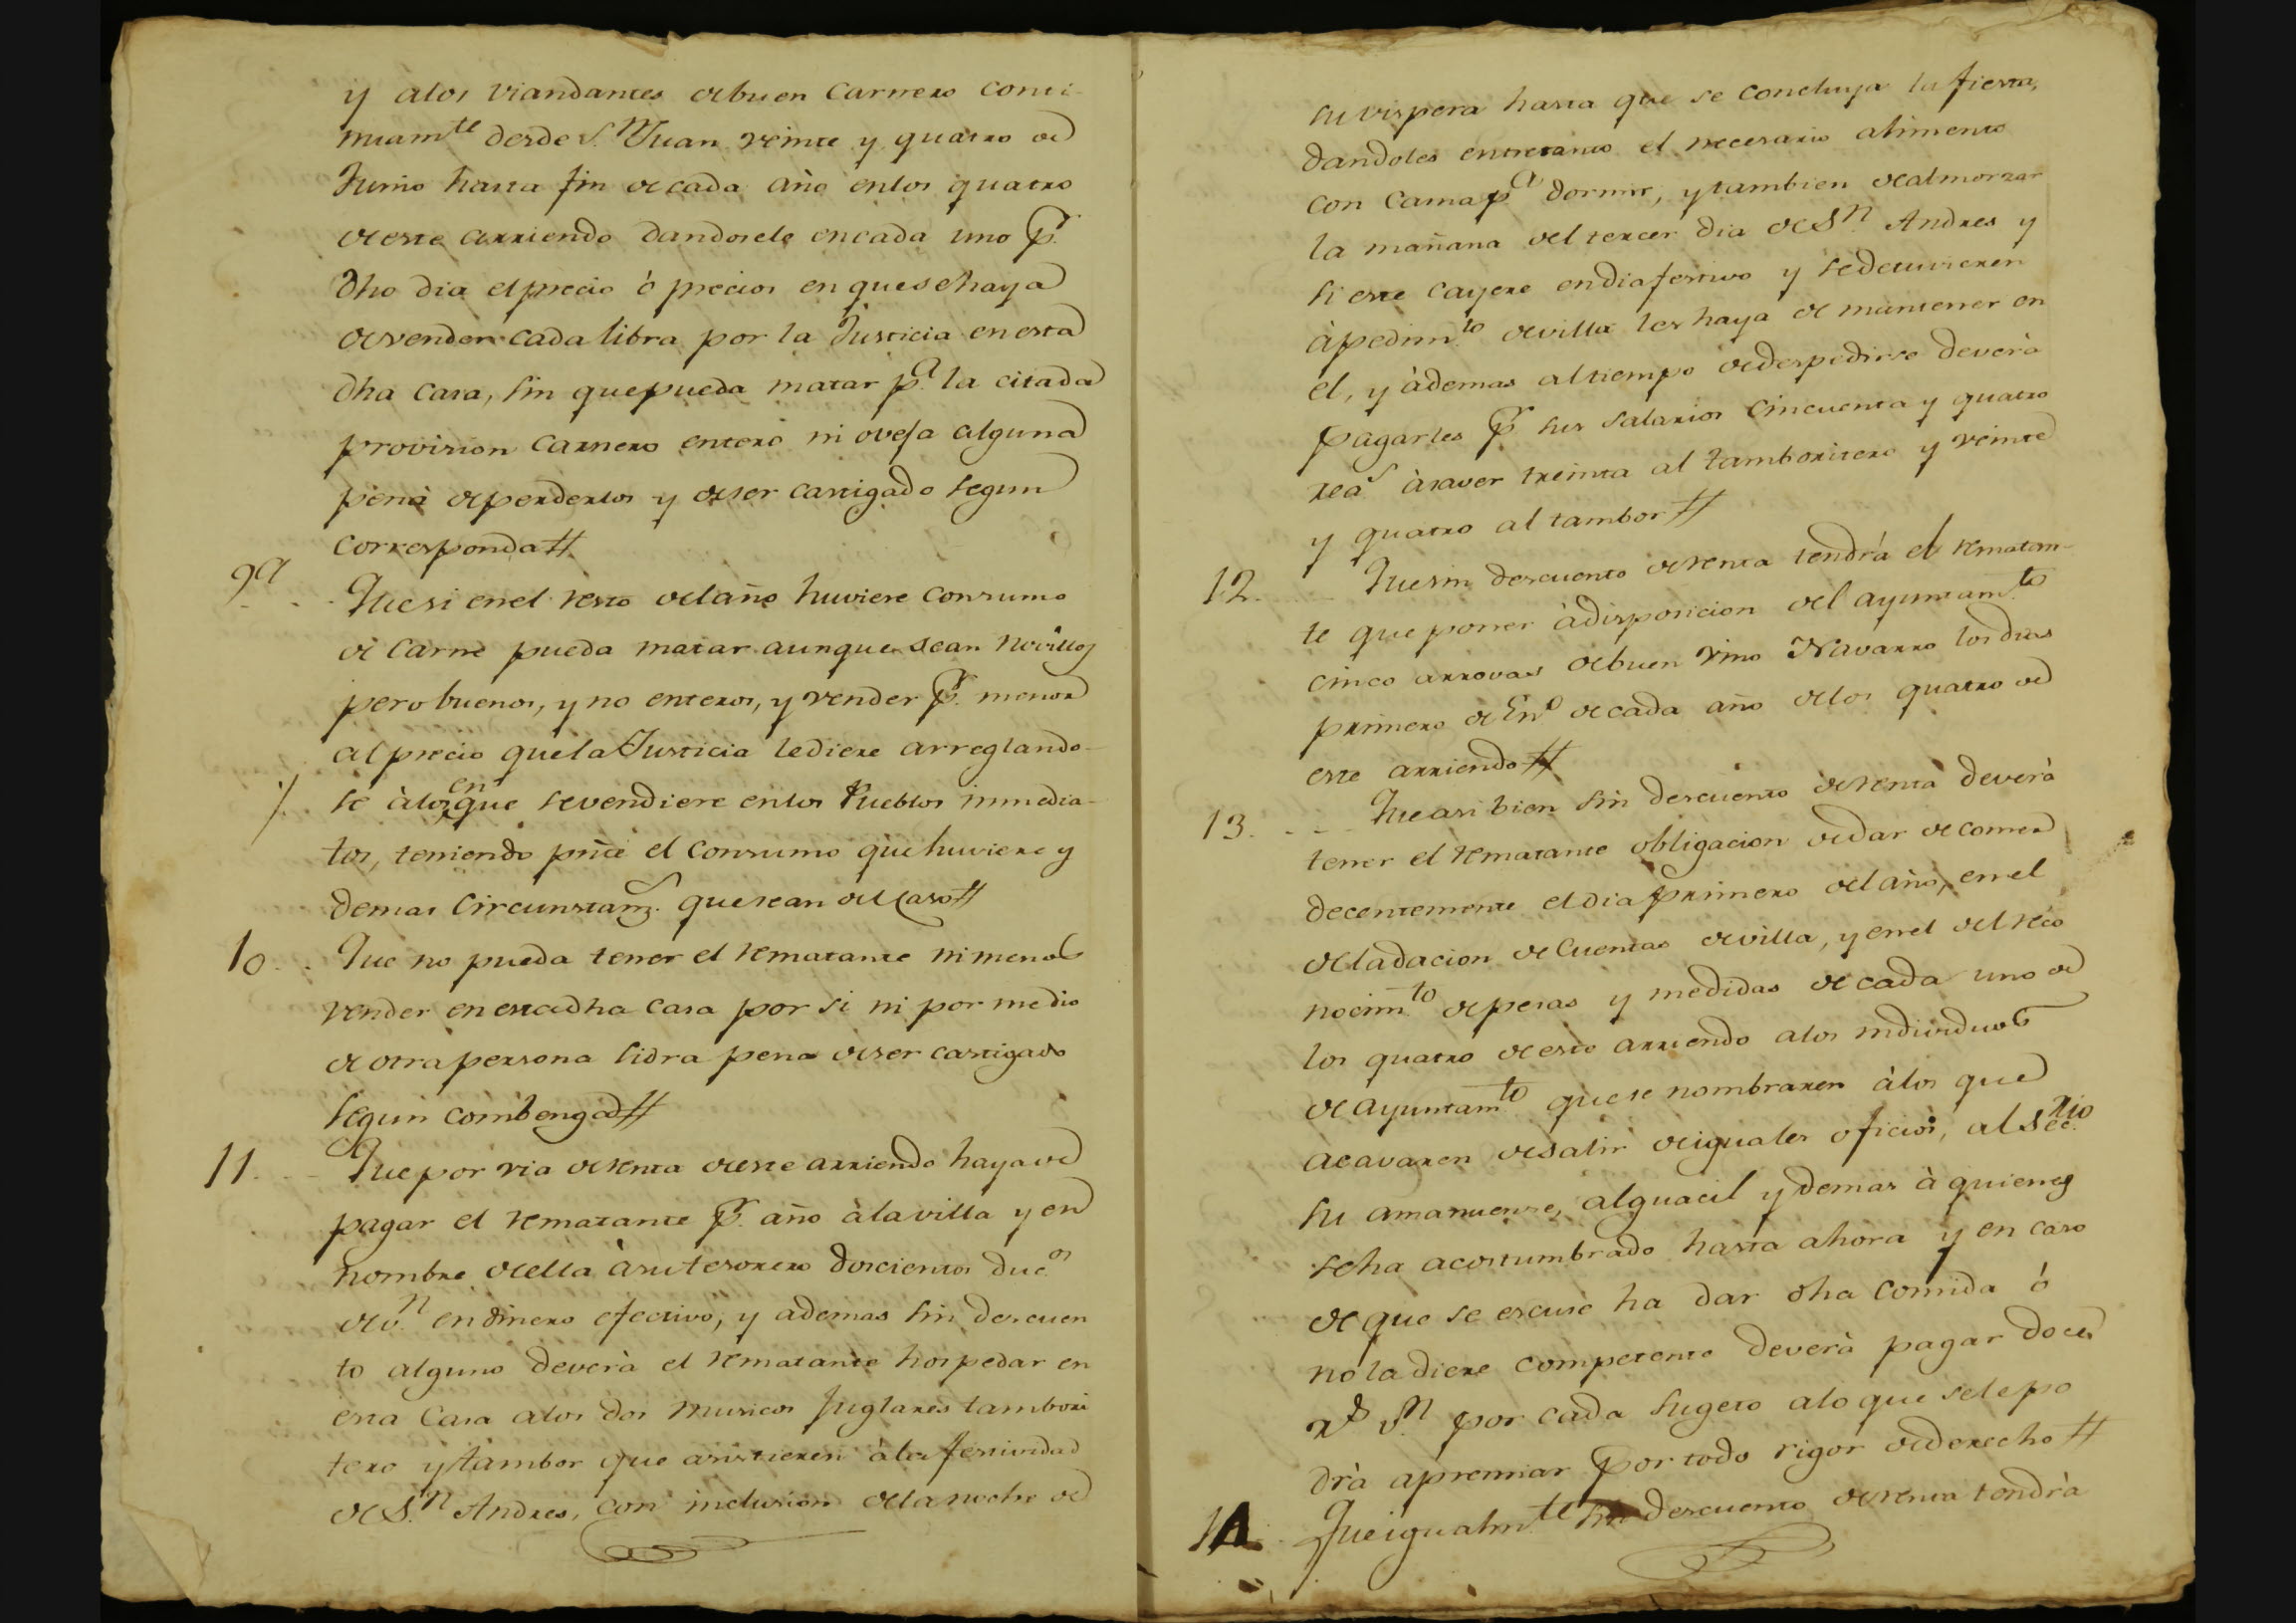 y alos viandantes de buen Carnero conti-
nuamte desde S.n Juan veinte y quatro de
Junio hasta fin de cada año enlos quatro
de este arriendo dandosele encada uno pr.
dho dia el precio ò precios en quesehaya
devender cada libra por la Justicia en esta
dha Casa, sin que pueda matar pa. la citada
provision Carnero entero ni oveja alguna
pena deperderlos y deser castigado segun
corresponda #
9a . . Que si en el resto del año huviere Consumo
de Carne pueda matar aunque sean Novillos
pero buenos, y no enteros, y vender pr. menor
al precio quela Justicia lediere arreglando-
se àlos en que sevendiere enlos Pueblos inmedia-
tos, teniendo pnte el Consumo que huviere y
demas Circunstanz.s que sean del Caso #
10 . . Que no pueda tener el rematante ni menos
vender en esta dha Casa por si ni por medio
de otra persona sidra pena deser castigado
segun combenga #
11 . . Que por via derenta deeste arriendo haya de
pagar el rematante pr. año àla villa y en
nombre della àsu tesorero doscientos duc.os
de v.n en dinero efectivo, y ademas sin descuen
to alguno deverà el rematante hospedar en
esta Casa alos dos Musicos Juglares tambori
tero y tambor que asistieren àla festividad
de S.n Andres, con inclusion dela noche de
su vispera hasta que se concluya la fiesta,
dandoles entretanto el necesario alimento
con Cama pa dormir, y tambien dealmorzar
la mañana del tercer dia de S.n Andres y
si este cayere endia festivo y sedetuvieren
àpedim.to devilla les haya de mantener en
el, y àdemas altiempo dedespedirse deverà
pagarles pr sus salarios cincuenta y quatro
reas àsaver treinta al tamboritero y veinte
y quatro al tambor #
12. Que sin descuento derenta tendrà el rematan-
te que poner àdisposicion del ayuntam.to
cinco arrovas debuen vino Navarro los dias
primero de En.o decada año delos quatro de
este arriendo #
13. - - Que asi bien sin descuento derenta deverà
tener el rematante obligacion dedar decomer
decentemente el dia primero del año, en el
de ladacion de Cuentas devilla, y en el del reco
nocim.to depesas y medidas de cada uno de
los quatro de este arriendo alos individuos
de ayuntam.to que se nombraren àlos que
acavaren desalir deiguales oficios, al Sec.rio
su amanuense, alguacil y demas à quienes
seha acostumbrado hasta ahora y en caso
de que se escuse ha dar dha comida ò
no la diere competente deverà pagar doce
rs v.n por cada sugeto alo que sele po
drà apremiar por todo rigor dederecho #
14. Que igualm.te sin descuento derenta tendrà